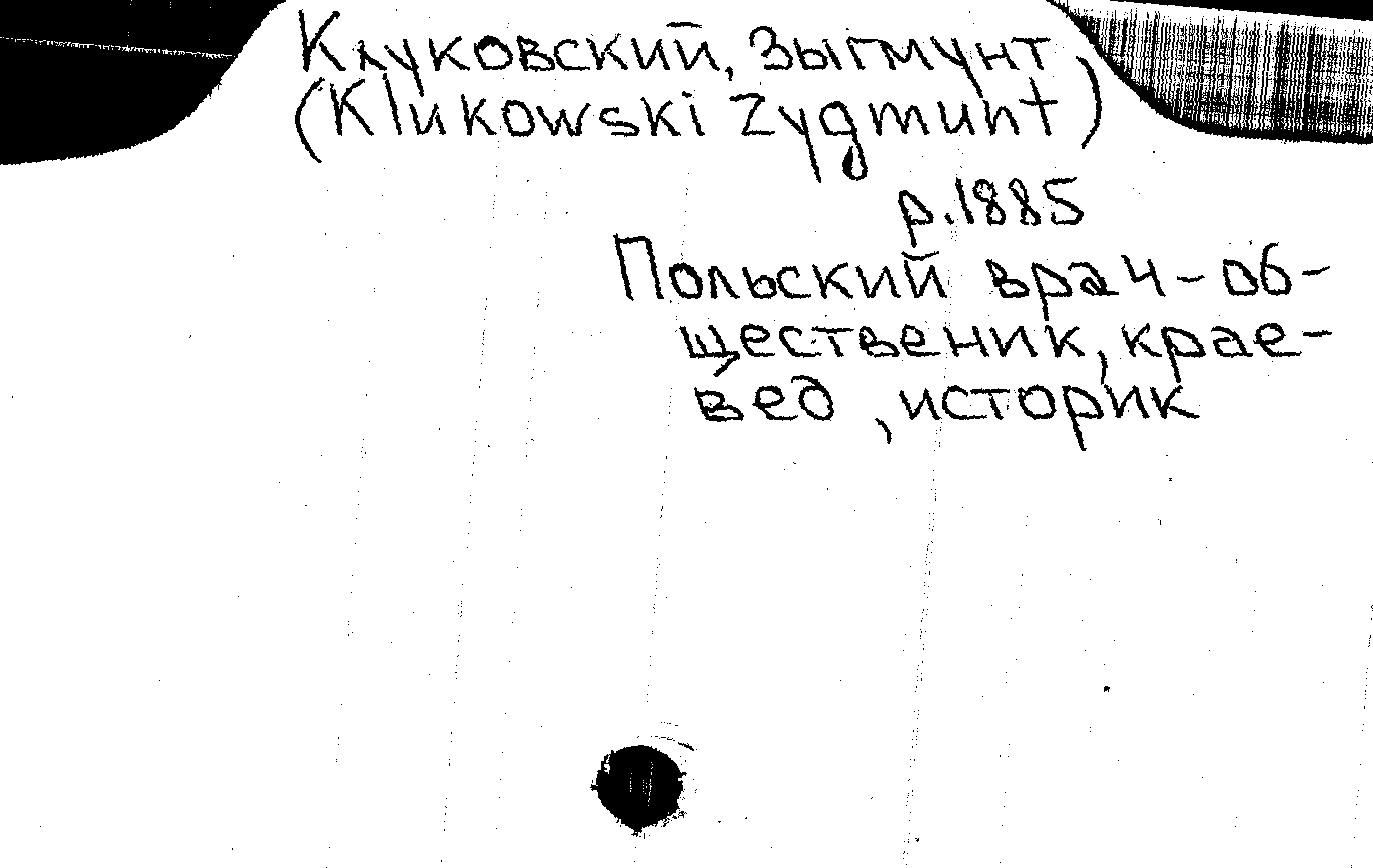 Клуковский, Зыгмунт
(Klukowski Zygmunt)
р.1885
Польский врач-об-
щественик, крае-
вед, историк